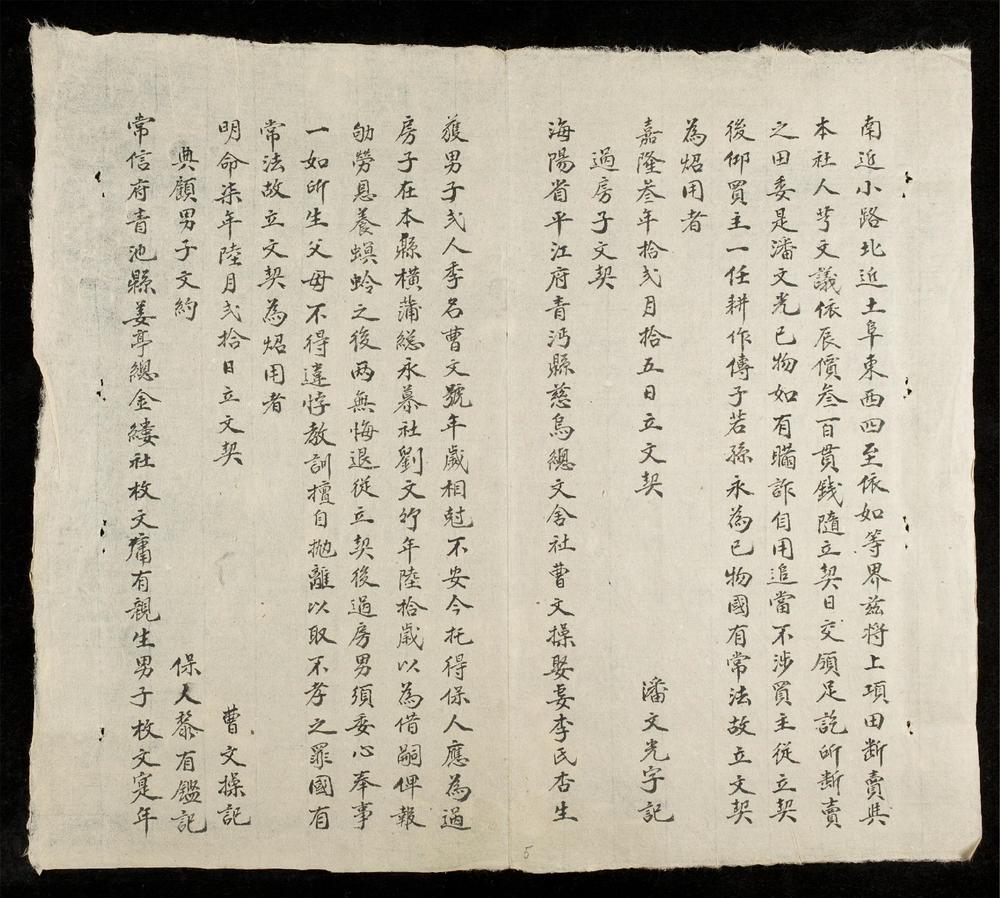 南近小路北近土阜東西四至依如等界茲將上項田断賣與
本社人芍文議依辰價叁百貫銭隨立契日交領足訖所断賣
之田委是潘文光已物如有瞞詐自用追當不涉買主從立契
後仰買主一任耕作傳子若孫永為已物國有常法故立文契
為炤用者
嘉隆叁年拾弍月拾五日立文契 潘文光字記
過房子文契
海陽省平江府青沔縣慈烏總文舍社曹文操娶妾李氏杏生
獲男子弍人季名曹文號年歲相尅不安今托得保人應為過
房子在本縣橫蒲総永慕社劉文竹年陸拾歲以為借嗣俾報
劬勞恩養螟蛉之後两無悔退從立契後過房男須委心奉事
一如所生父母不得違悖教訓擅自抛離以取不孝之罪國有
常法故立文契為炤用者
明命柒年陸月弍拾日立文契 曹文操記
典顧男子文約 保人黎有鑑記
常信府青池縣姜亭總金縷社枚文庸有親生男子枚文寔年
5